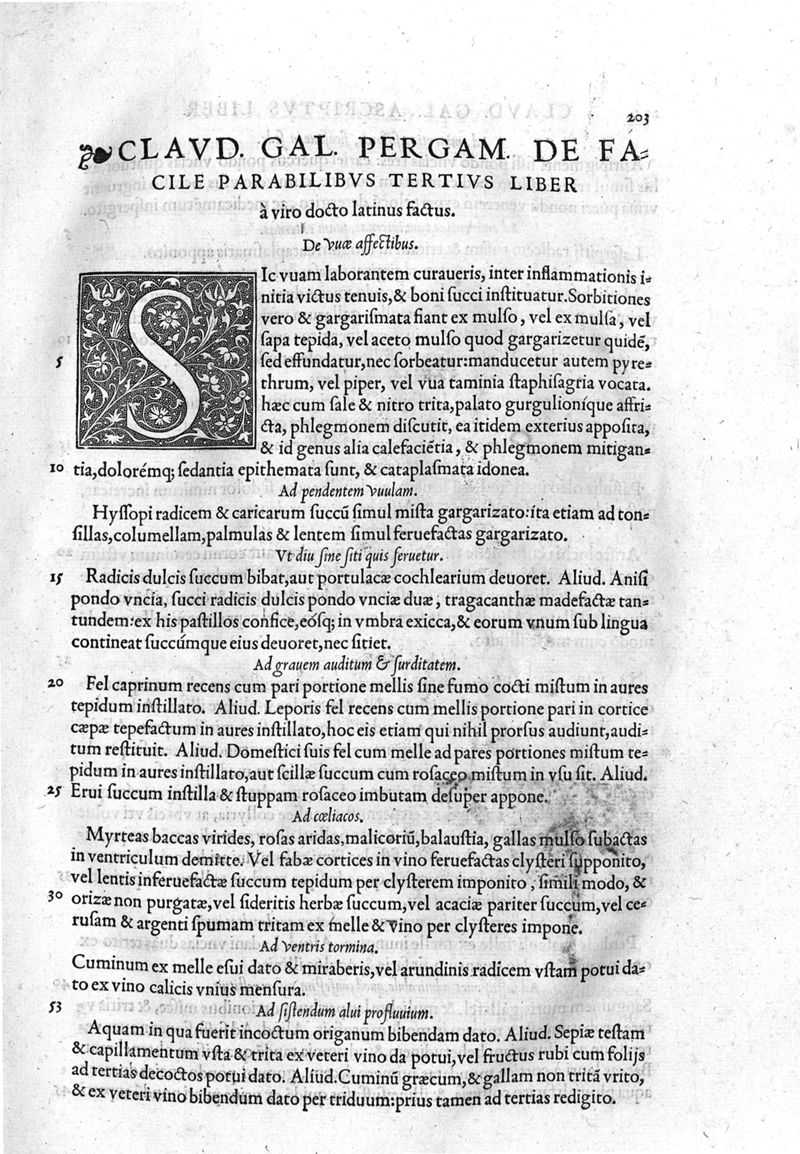 203
CLAVD. GAL. PERGAM. DE FA-
CILE PARABILIBVS TERTIVS LIBER
à viro docto latinus factus.
De vuæ affectibus.
SIc vuam laborantem curaueris, inter inflammationis i-
nitia victus tenuis, & boni succi instituatur. Sorbitiones
vero & gargarismata fiant ex mulso, vel ex mulsa, vel
sapa tepida, vel aceto mulso quod gargarizetur quidē,
5 sed effundatur, nec sorbeatur: manducetur autem pyre-
thrum, vel piper, vel vua taminia staphisagria vocata.
hæc cum sale & nitro trita, palato gurgulioníque affri-
cta, phlegmonem discutit, ea itidem exterius apposita,
& id genus alia calefaciētia, & phlegmonem mitigan-
10 tia, dolorémq; sedantia epithemata sunt, & cataplasmata idonea.
Ad pendentem vuulam.
Hyssopi radicem & caricarum succū simul mista gargarizato: ita etiam ad ton-
sillas, columellam, palmulas & lentem simul feruefactas gargarizato.
Vt diu sine siti quis seruetur.
15 Radicis dulcis succum bibat, aut portulacæ cochlearium deuoret. Aliud. Anisi
pondo vncia, succi radicis dulcis pondo vnciæ duæ, tragacanthæ madefactæ tan-
tundem: ex his pastillos confice, eósq; in vmbra exicca, & eorum vnum sub lingua
contineat succúmque eius deuoret, nec sitiet.
Ad grauem auditum & surditatem.
20 Fel caprinum recens cum pari portione mellis sine fumo cocti mistum in aures
tepidum instillato. Aliud. Leporis fel recens cum mellis portione pari in cortice
cæpæ tepefactum in aures instillato, hoc eis etiam qui nihil prorsus audiunt, audi-
tum restituit. Aliud. Domestici suis fel cum melle ad pares portiones mistum te-
pidum in aures instillato, aut scillæ succum cum rosaceo mistum in vsu sit. Aliud.
25 Erui succum instilla & stuppam rosaceo imbutam desuper appone.
Ad cœliacos.
Myrteas baccas virides, rosas aridas, malicoriū, balaustia, gallas mulso subactas
in ventriculum demitte. Vel fabæ cortices in vino feruefactas clysteri supponito,
vel lentis inferuefactæ succum tepidum per clysterem imponito, simili modo, &
30 orizæ non purgatæ, vel sideritis herbæ succum, vel acaciæ pariter succum, vel ce-
rusam & argenti spumam tritam ex melle & vino per clysteres impone.
Ad ventris tormina.
Cuminum ex melle esui dato & miraberis, vel arundinis radicem vstam potui da-
to ex vino calicis vnius mensura.
53 Ad sistendum alui profluuium.
Aquam in qua fuerit incoctum origanum bibendam dato. Aliud. Sepiæ testam
& capillamentum vsta & trita ex veteri vino da potui, vel fructus rubi cum folijs
ad tertias decoctos potui dato. Aliud. Cuminū græcum, & gallam non tritā vrito,
& ex veteri vino bibendum dato per triduum: prius tamen ad tertias redigito.